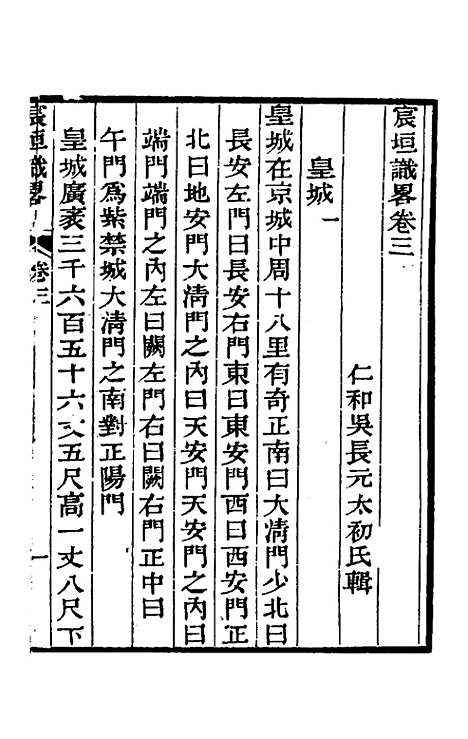 宸垣識畧卷三
仁和吳長元太初氏輯
皇城一
皇城在京城中周十八里有奇正南曰大淸門少北曰
長安左門曰長安右門東曰東安門西曰西安門正
北曰地安門大淸門之內曰天安門天安門之內曰
端門端門之內左曰闕左門右曰闕右門正中曰
午門爲紫禁城大淸門之南對正陽門
皇城廣袤三千六百五十六丈五尺高一丈八尺下
宸垣識畧
卷三
一